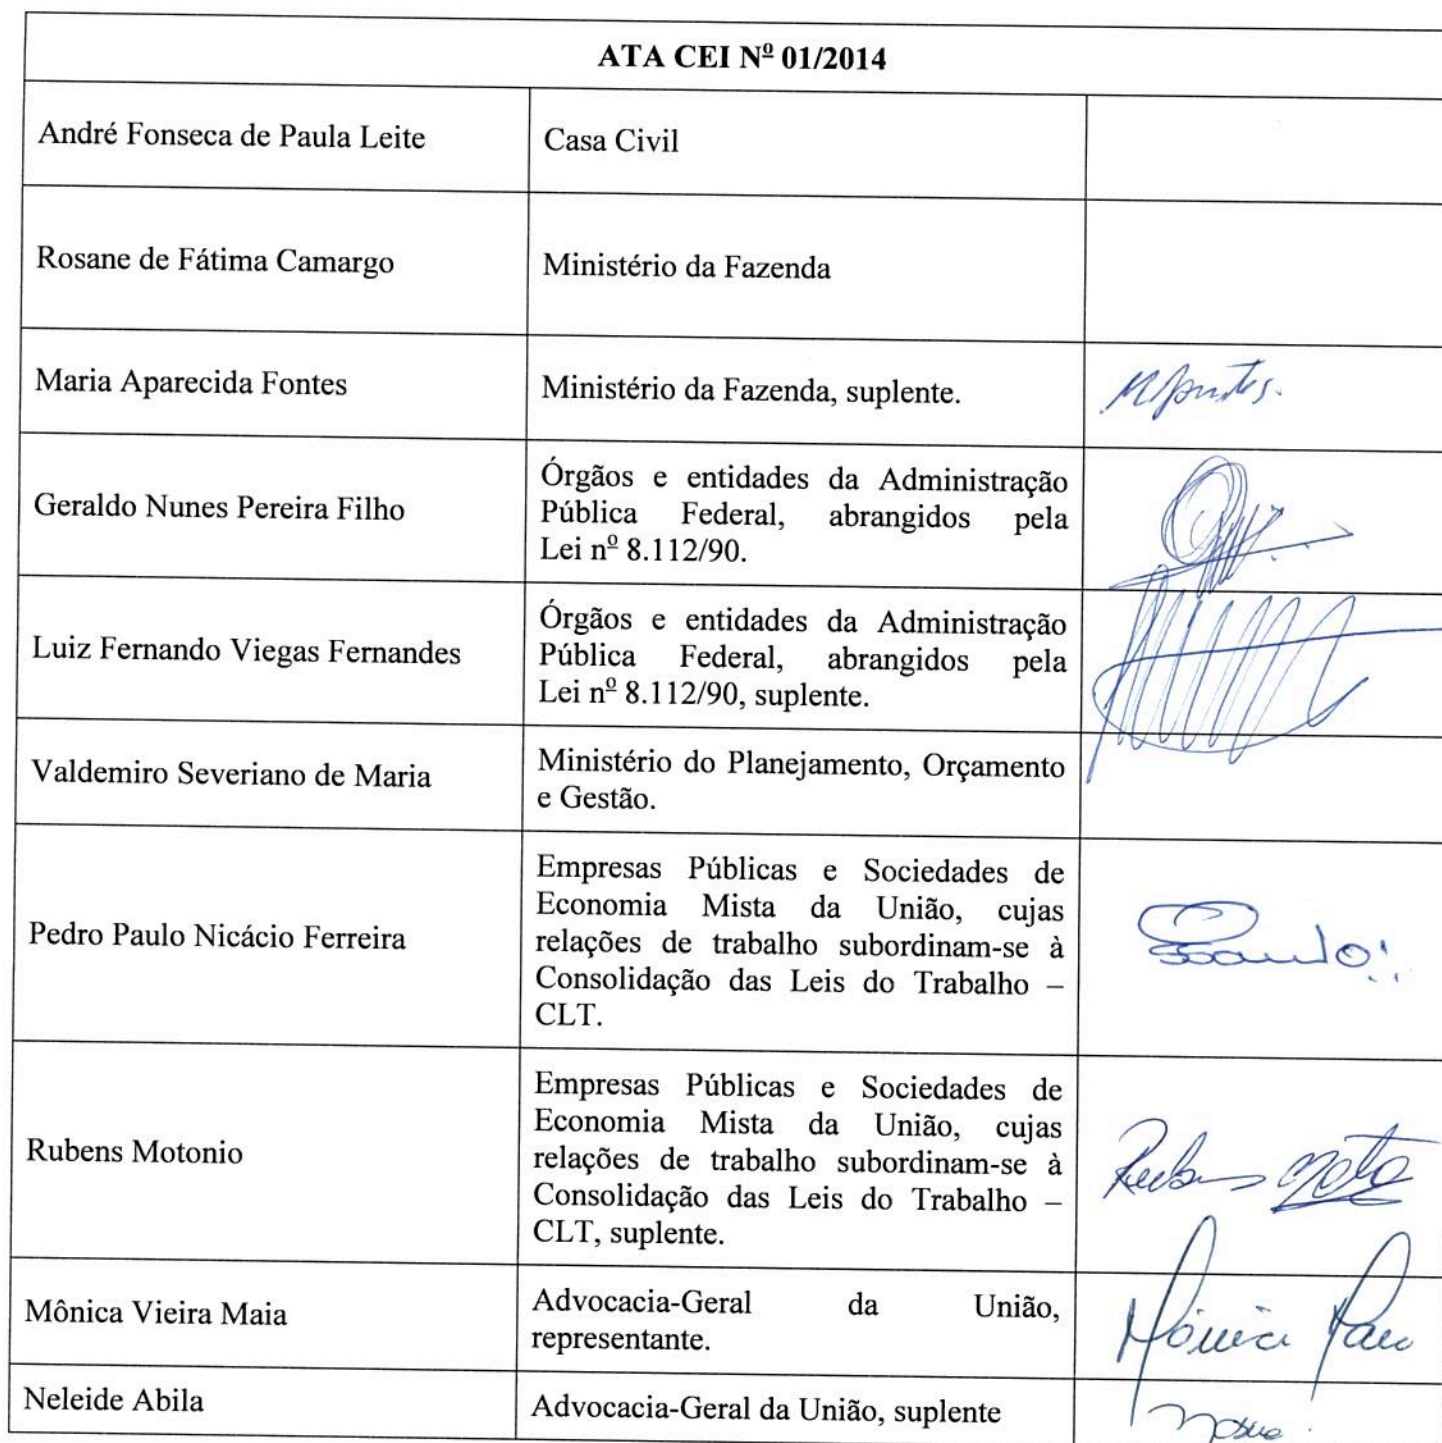 ATA CEI Nº 01/2014
André Fonseca de Paula Leite
Casa Civil
Rosane de Fátima Camargo
Ministério da Fazenda
Maria Aparecida Fontes
Ministério da Fazenda, suplente.
Geraldo Nunes Pereira Filho
Órgãos e entidades da Administração
Pública Federal, abrangidos pela
Lei nº 8.112/90.
Luiz Fernando Viegas Fernandes
Órgãos e entidades da Administração
Pública Federal, abrangidos pela
Lei nº 8.112/90, suplente.
Valdemiro Severiano de Maria
Ministério do Planejamento, Orçamento
e Gestão.
Pedro Paulo Nicácio Ferreira
Empresas Públicas e Sociedades de
Economia Mista da União, cujas
relações de trabalho subordinam-se à
Consolidação das Leis do Trabalho –
CLT.
Rubens Motonio
Empresas Públicas e Sociedades de
Economia Mista da União, cujas
relações de trabalho subordinam-se à
Consolidação das Leis do Trabalho –
CLT, suplente.
Rubens
Mônica Vieira Maia
Advocacia-Geral da União,
representante.
Mônica
Neleide Abila
Advocacia-Geral da União, suplente